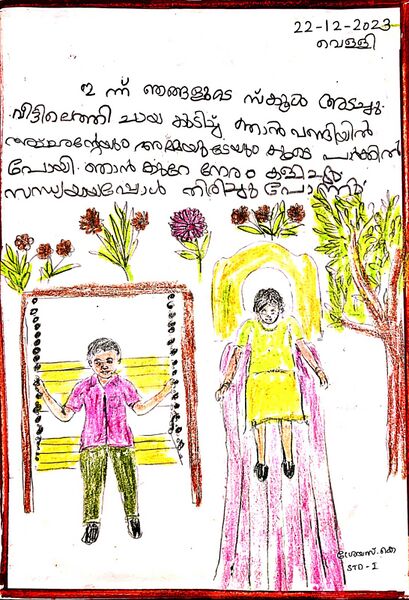 22-12-2023
വെള്ളി
ഇന്ന് ഞങ്ങളുടെ സ്കൂൾ അടച്ചു.
വീട്ടിലെത്തി ചായ കുടിച്ച് ഞാൻ
അച്ഛന്റെയും അമ്മയുടെയും കൂടെ പാർക്കിൽ
പോയി. ഞാൻ കുറേ നേരം കളിച്ചു
സന്ധ്യയായപ്പോൾ തിരിച്ചു പോന്നു.
കെ
STD-I